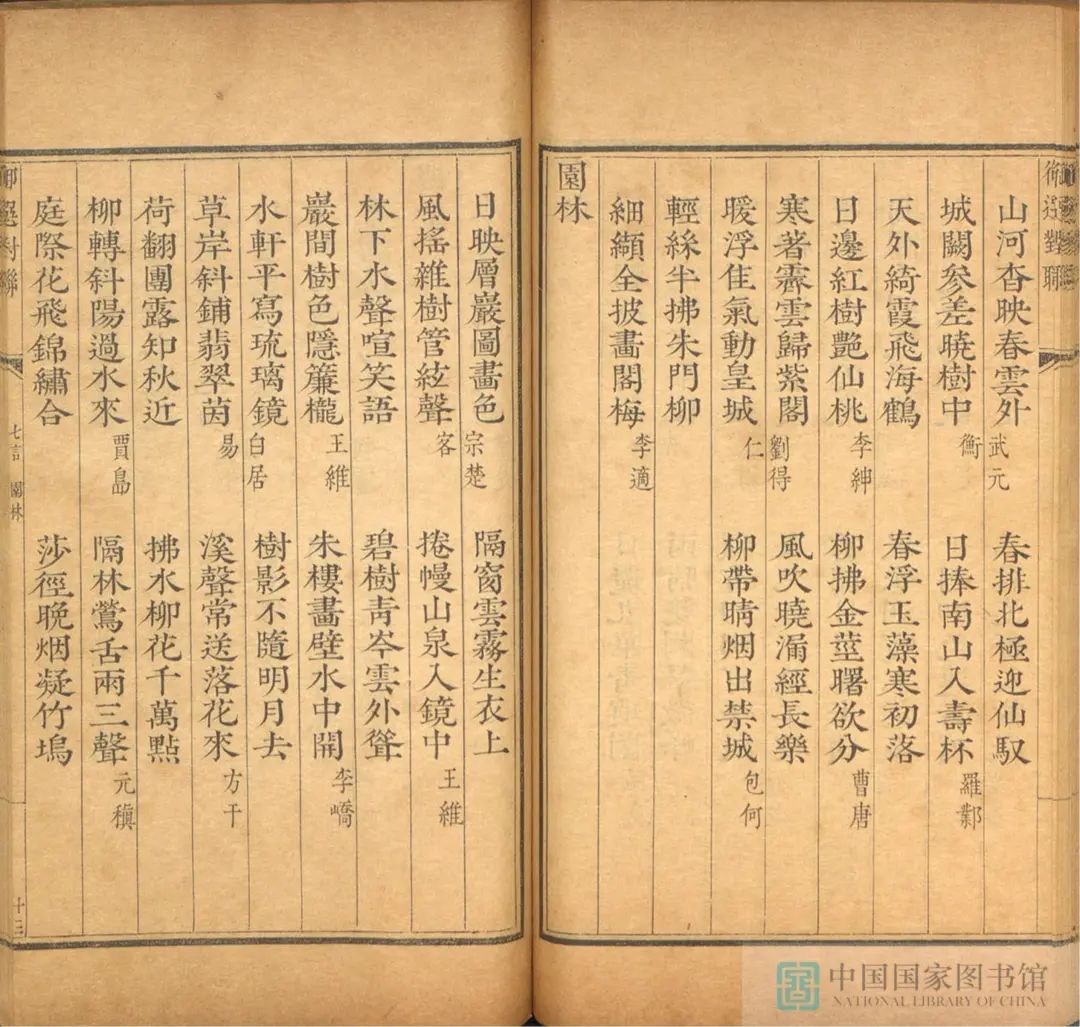 御選對聯
山河杳映春雲外
城闕參差曉樹中
武元衡
春排北極迎仙馭
日捧南山入壽杯
羅鄴
天外綺霞飛海鶴
日邊紅樹艷仙桃
李紳
春浮玉藻寒初落
柳拂金莖曙欲分
曹唐
寒著霽雲歸紫閣
暖浮佳氣動皇城
劉得仁
風吹曉漏經長樂
柳帶晴烟出禁城
包何
輕絲半拂朱門柳
細纈全披畫閣梅
李適
園林
日映層巖圖畫色
風搖雜樹管絃聲
宗楚客
隔窗雲霧生衣上
捲幔山泉入鏡中
王維
林下水聲喧笑語
巖間樹色隱簾櫳
王維
碧樹青岑雲外聳
朱樓畫壁水中開
李嶠
水軒平寫琉璃鏡
草岸斜鋪翡翠茵
白居易
樹影不隨明月去
溪聲常送落花來
方干
荷翻團露知秋近
柳轉斜陽過水來
賈島
拂水柳花千萬點
隔林鶯舌兩三聲
元稹
庭際花飛錦繡合
莎徑晚烟凝竹塢
御選對聯
七言 園林
十三
中国国家图书馆
NATIONAL LIBRARY OF CHINA